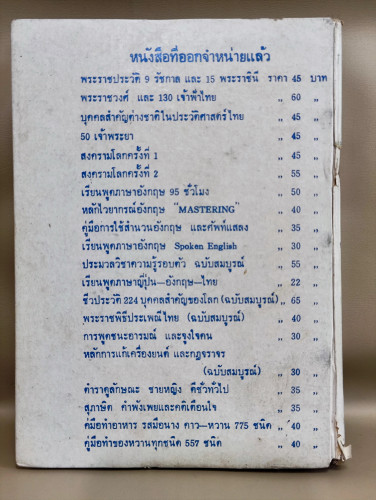 หนังสือที่ออกจำหน่ายแล้ว
พระราชประวัติ 9 รัชกาล และ 15 พระราชินี ราคา 45 บาท
พระราชวงศ์ และ 130 เจ้าฟ้าไทย „ 60 „
บุคคลสำคัญต่างชาติในประวัติศาสตร์ไทย „ 45 „
50 เจ้าพระยา „ 45 „
สงครามโลกครั้งที่ 1 „ 45 „
สงครามโลกครั้งที่ 2 „ 55 „
เรียนพูดภาษาอังกฤษ 95 ชั่วโมง „ 50 „
หลักไวยากรณ์อังกฤษ "MASTERING" „ 40 „
คู่มือการใช้สำนวนอังกฤษ และศัพท์แสลง „ 35 „
เรียนพูดภาษาอังกฤษ Spoken English „ 30 „
ประมวลวิชาความรู้รอบตัว ฉบับสมบูรณ์ „ 55 „
เรียนพูดภาษาญี่ปุ่น—อังกฤษ—ไทย „ 22 „
ชีวประวัติ 224 บุคคลสำคัญของโลก (ฉบับสมบูรณ์) „ 65 „
พระราชพิธีประเพณีไทย (ฉบับสมบูรณ์) „ 40 „
การพูดชนะอารมณ์ และจูงใจคน „ 30 „
หลักการแก้เครื่องยนต์ และกฎจราจร
(ฉบับสมบูรณ์) „ 30 „
ตำราดูลักษณะ ชายหญิง ดีชั่วทั่วไป „ 35 „
สุภาษิต คำพังเพยและคติเตือนใจ „ 35 „
คู่มือทำอาหาร รสมือนาง คาว—หวาน 775 ชนิด „ 40 „
คู่มือทำของหวานทุกชนิด 557 ชนิด „ 40 „